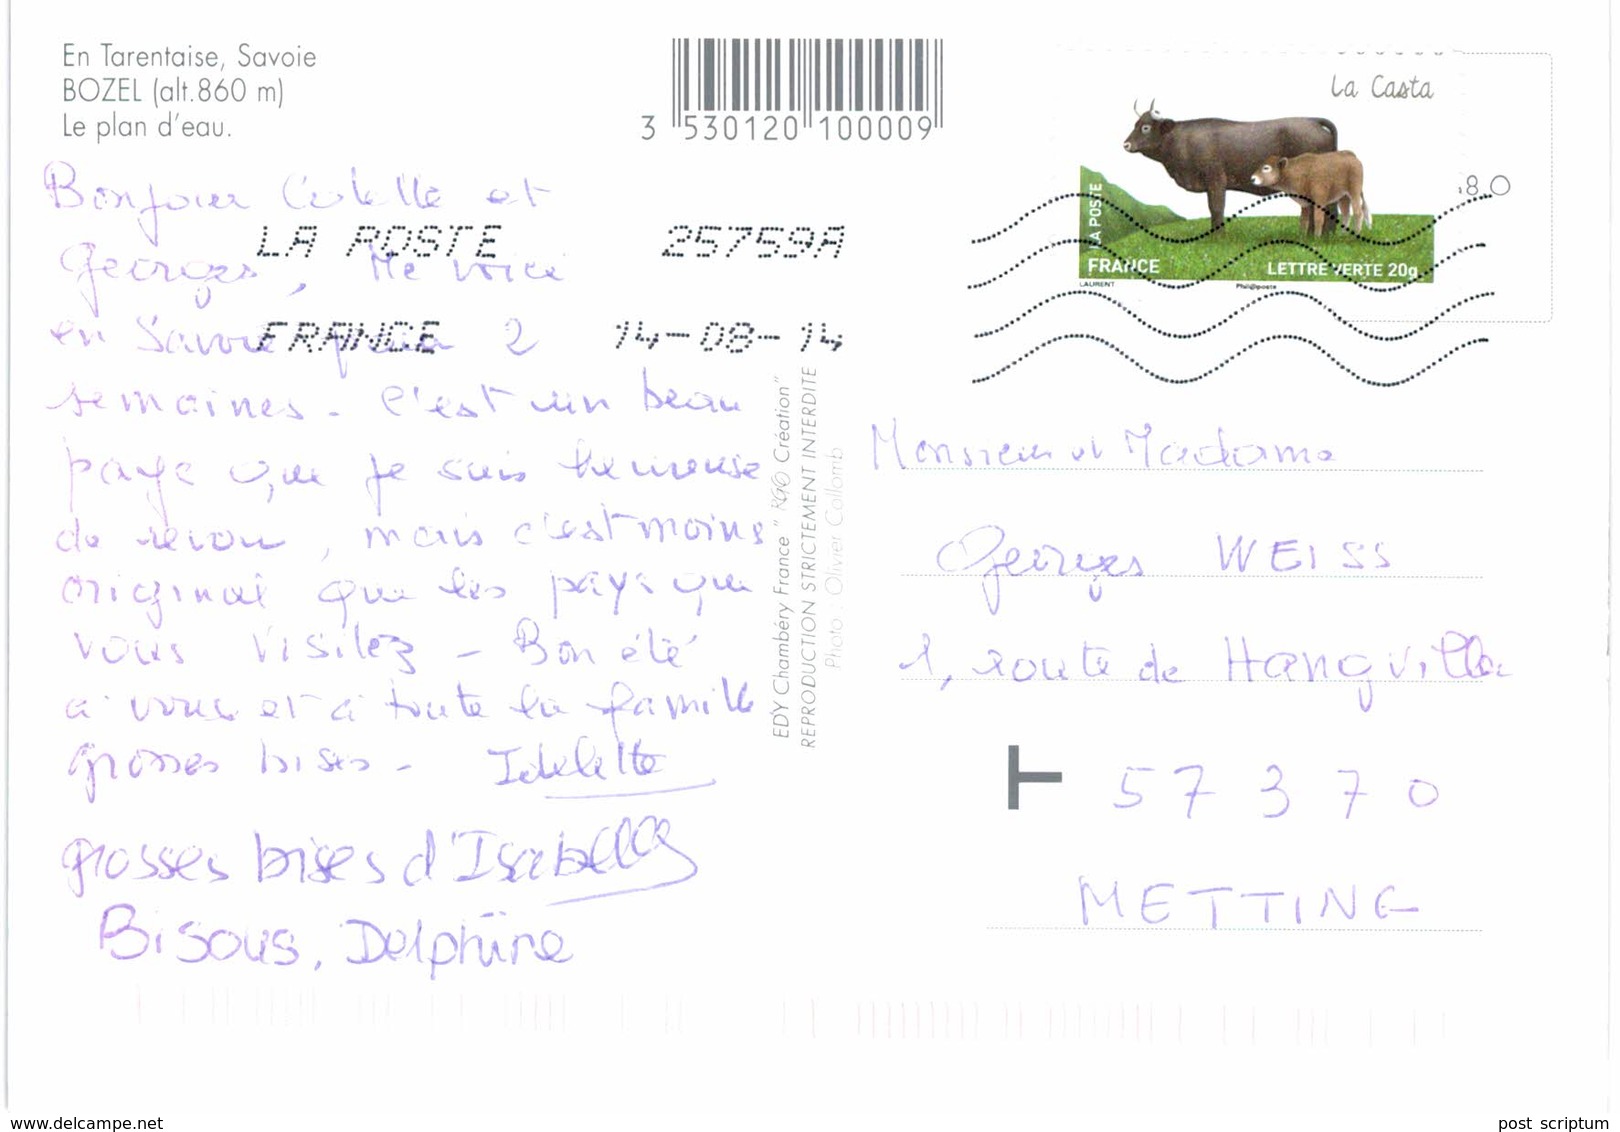 En Tarentaise, Savoie
BOZEL (alt.860 m)
Le plan d'eau.
3 530120 100009
La Casta
80
LA POSTE
FRANCE
LETTRE VERTE 20g
LAURENT
Phil@poste
LA POSTE 25759A
FRANCE 14-08-14
Bonjour Colette et
Georges, Me voici
en Savoie pour 2
semaines - C'est un beau
pays que je suis heureuse
de revoir, mais c'est moins
original que les pays que
vous visitez - Bon été
à vous et à toute la famille
grosses bises -
grosses bises d'Isabelle
Bisous, Delphine
EDY Chambéry France " Création"
REPRODUCTION STRICTEMENT INTERDITE
Photo : Olivier Collomb
Monsieur et Madame
Georges WEISS
1, route de Hangviller
57370
METTING
www.delcampe.net
post scriptum